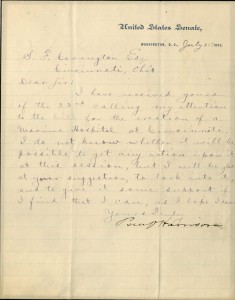 United States Senate,
Washington, D.C. July 25 1882.
S. F. Covington Esq
Cincinnati, Ohio
Dear Sir:
I have received yours
of the 22nd calling my attention
to the bill for the erection of a
Marine Hospital at Cincinnati.
I do not know whether it will be
possible to get any action upon it
at this session, but I will be glad
at your suggestion, to look into it
and to give it some support if
I find that I can, as I hope I can
Yours truly
Benj Harrison